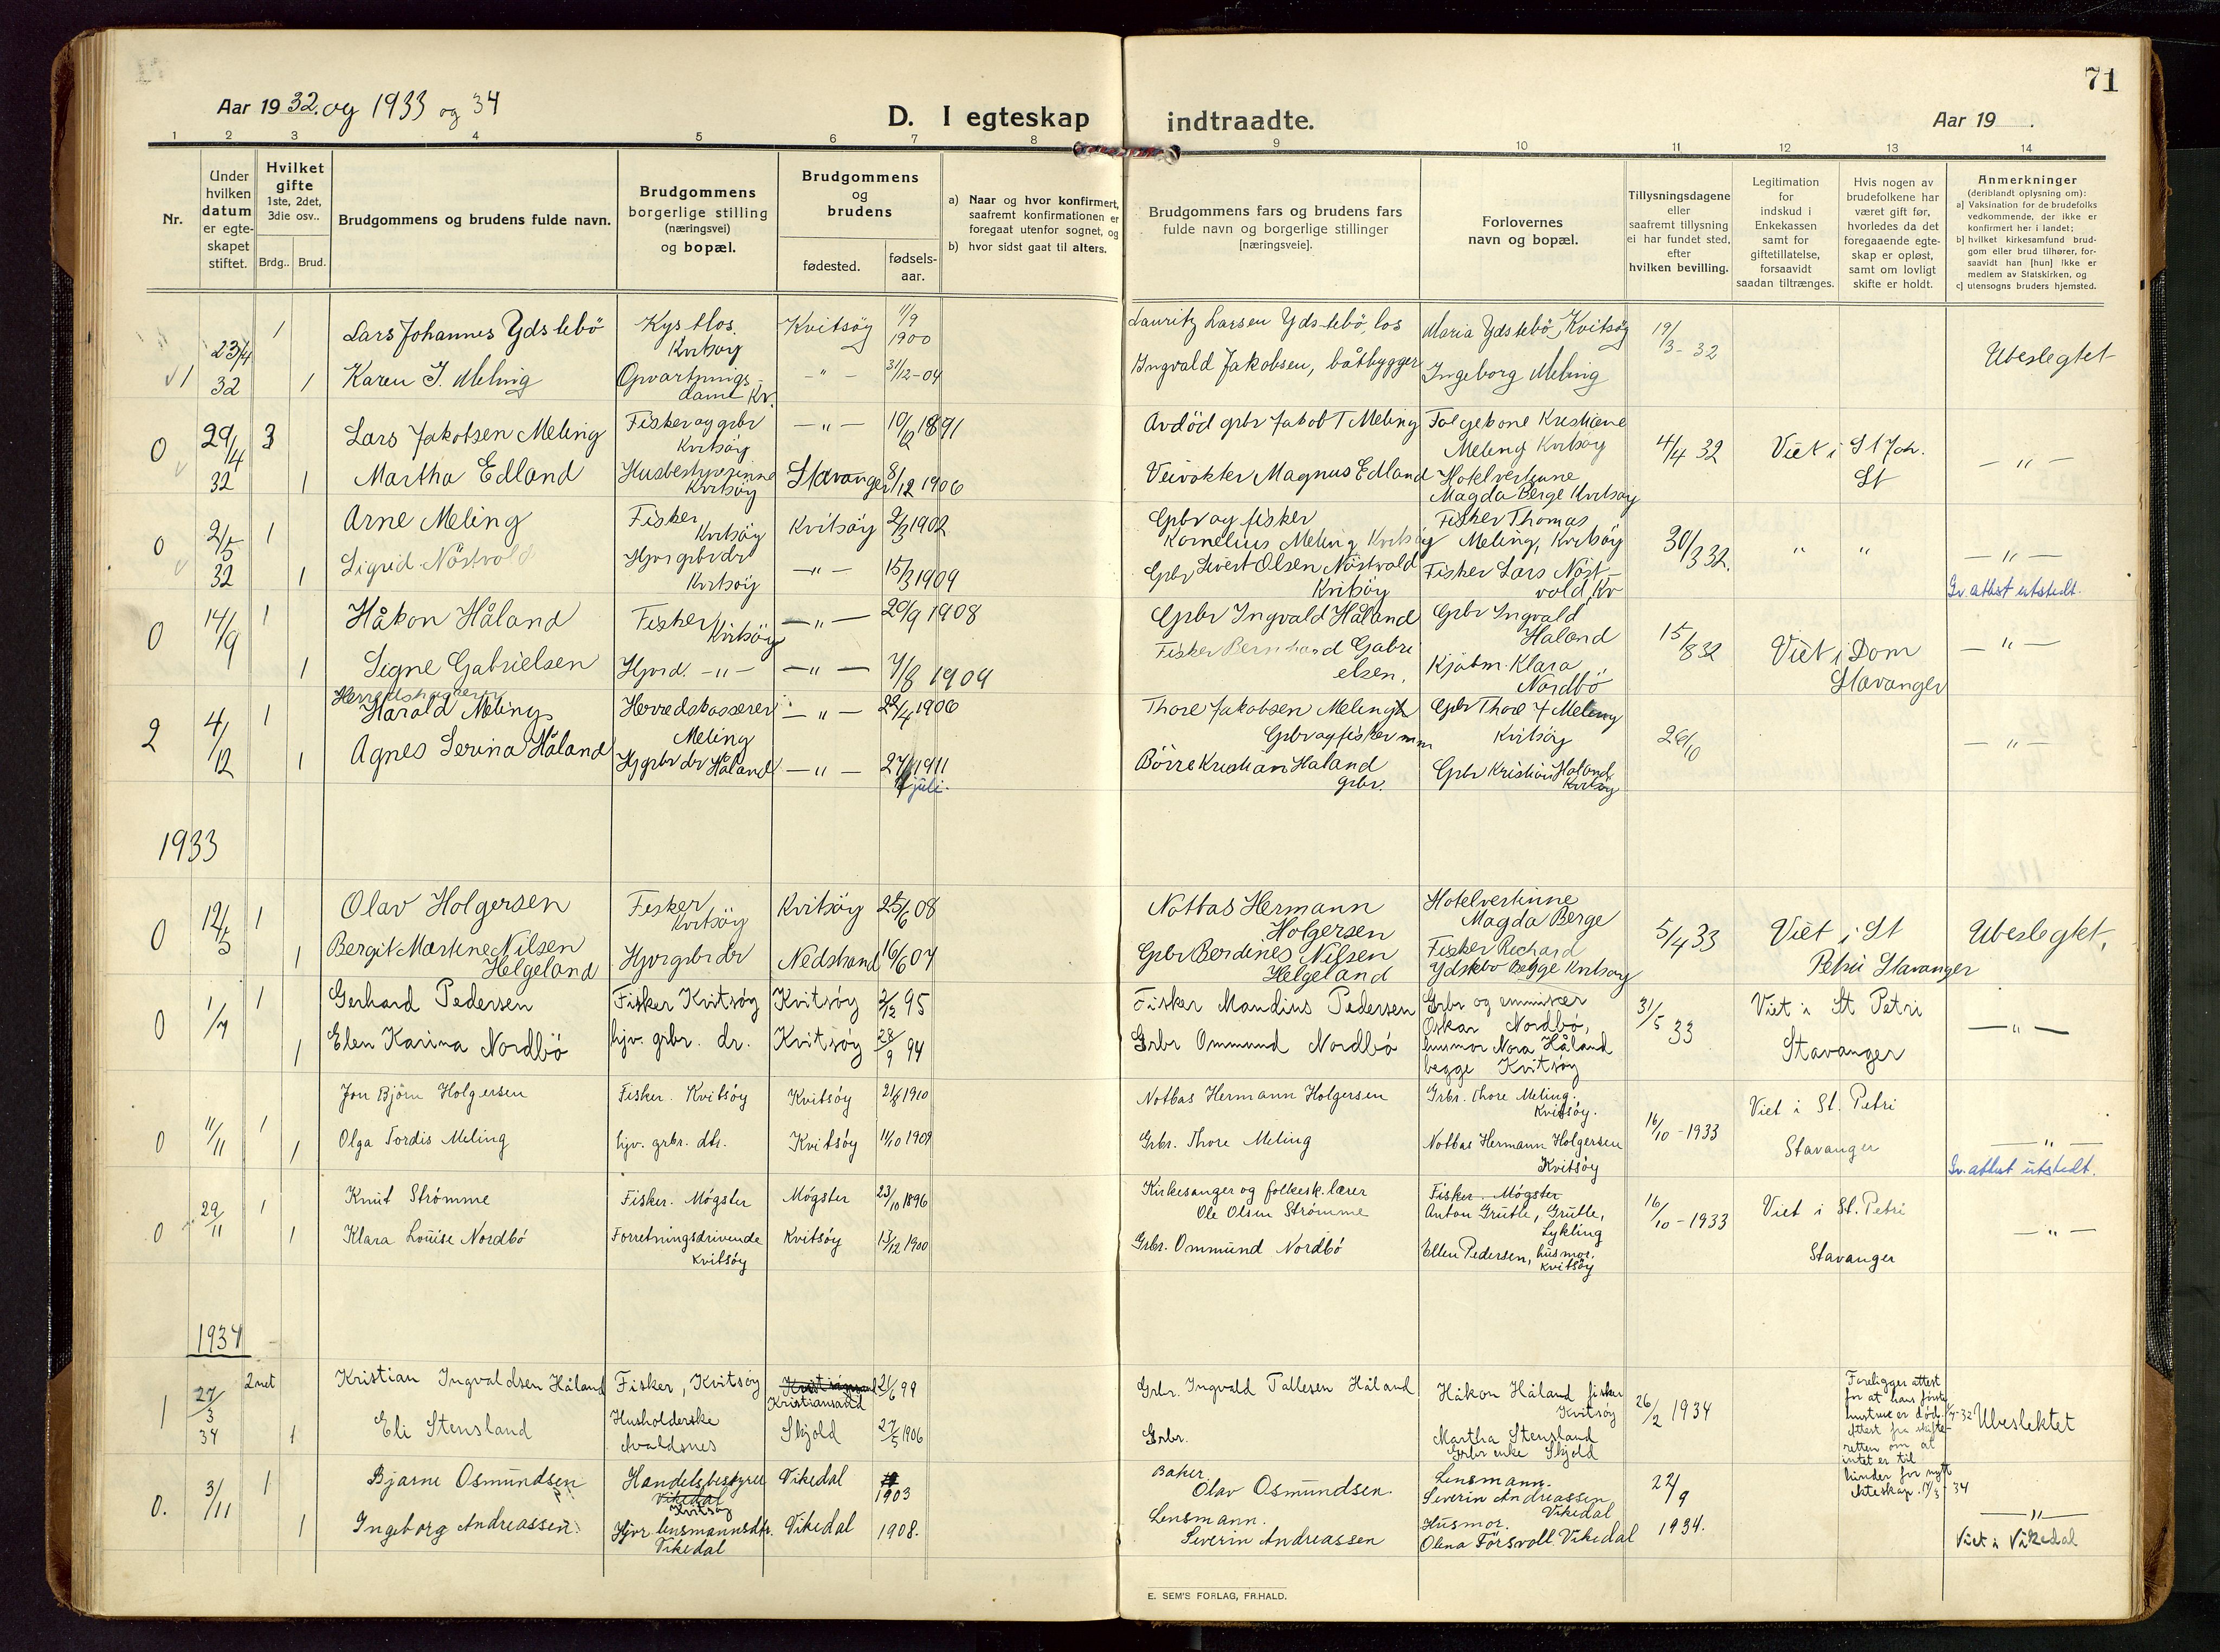 71
Aar 1932. og 1933 og 34
D. I egteskap indtraadte.
Aar 19 .
1 2 3 4 5 6 7 8 9 10 11 12 13 14
Nr.
Under hvilken datum er egte-skapet stiftet.
Hvilket gifte 1ste, 2det, 3die osv..
Brdg.. Brud.
Brudgommens og brudens fulde navn.
Brudgommens borgerlige stilling (næringsvei) og bopæl.
Brudgommens og brudens
fødested. fødsels-aar.
a) Naar og hvor konfirmert, saafremt konfirmationen er foregaat utenfor sognet, og
b) hvor sidst gaat til alters.
Brudgommens fars og brudens fars fulde navn og borgerlige stillinger [næringsveie].
Forlovernes navn og bopæl.
Tillysningsdagene eller saafremt tillysning ei har fundet sted, efter hvilken bevilling.
Legitimation for indskud i Enkekassen samt for giftetillatelse, forsaavidt saadan tiltrænges.
Hvis nogen av brudefolkene har været gift før, hvorledes da det foregaaende egte-skap er opløst, samt om lovligt skifte er holdt.
Anmerkninger (deriblandt oplysning om):
a] Vaksination for de brudefolks vedkommende, der ikke er konfirmert her i landet;
b] hvilket kirkesamfund brud-gom eller brud tilhører, for-saavidt han [hun] ikke er medlem av Statskirken, og
c] utensogns bruders hjemsted.
1 23/4 32 1 Lars Johannes Ydstebö Kystlos. Kvitsøy Kvitsøy 11/9 1900 Lauritz Larsen Ydstebö, los Maria Ydstebö, Kvitsøy 19/3-32 Ubeslegtet
1 Karen J. Meling Opvartnings-dame Kv. -"- 31/12-04 Ingvald Jakobsen, båtbygger Ingeborg Meling
0 29/4 32 3 Lars Jakobsen Meling Fisker og grbr Kvitsöy -"- 10/12 1891 Avdöd grbr Jakob T Meling Kristiane Meling Kvitsöy 4/4 32 Viet i St Joh. St -"-
1 Martha Edland Husbestyrerinne Kvitsöy Stavanger 8/12 1906 Veivokter Magnus Edland Hotelvertinne Magda Berge Kvitsöy
0 2/5 32 1 Arne Meling Fisker Kvitsöy Kvitsöy 2/3 1902 Grbr og fisker Kornelius Meling Kvitsöy Fisker Thomas Meling, Kvitsöy 30/3 32. " " -"-
1 Sigrid Nöstvold Hjv grbr dr Kvitsöy -"- 15/3 1909 Grbr Sivert Olsen Nöstvold Kvitsöy Fisker Lars Nöst-vold, Kv Gv. attest utstedt.
0 14/9 1 Håkon Håland Fisker Kvitsöy -"- 20/9 1908 Grbr Ingvald Håland Grbr Ingvald Haland 15/8 32 Viet i Dom Stavanger -"-
1 Signe Gabrielsen Hjvd. -"- -"- 7/8 1909 Fisker Bernhard Gabrielsen, Kjöbm. Klara Nordbö
2 4/12 1 Harald Meling Herredskasserer Meling -"- 22/4 1906 Thore Jakobsen Meling Grbr og fisker mm Grbr Thore J Meling Kvitsöy 26/10 -"-
1 Agnes Serina Håland Hj grbr dr Håland -"- 27 1911 juli. Börre Kristian Håland grbr. Grbr Kristian Haland Kvitsöy
1933
0 12/5 1 Olav Holgersen Fisker Kvitsöy Kvitsöy 25/6 08 Notbas Hermann Holgersen Hotelvertinne Magda Berge 5/4 33 Viet i St Petri Stavanger Ubeslegtet,
1 Bergit Martine Nilsen Helgeland Hjv grbr dr Nedstrand 16/6 07 Grbr Berdines Nilsen Helgeland Fisker Richard Ydstebö Begge Kvitsöy
0 1/7 1 Gerhard Pedersen Fisker Kvitsøy Kvitsøy 2/2 95 Fisker Mandius Pedersen Grbr og Oskar Nordbö, 31/5 33 Viet i St Petri Stavanger -"-
1 Elen Karina Nordbö hjv. grbr. dr. Kvitsøy 28/9 94 Grbr Ommund Nordbö husmor Nora Håland begge Kvitsøy
0 11/11 1 Jon Björn Holgersen Fisker. Kvitsøy Kvitsøy 21/8 1910 Notbas Hermann Holgersen Grbr. Thore Meling. Kvitsøy. 16/10-1933 Viet i St. Petri Stavanger -"-
1 Olga Tordis Meling hjv. grbr. dtr. Kvitsøy 11/10 1909 Grbr. Thore Meling Notbas Hermann Holgersen Kvitsøy Gv. attest utstedt.
0 29/11 1 Knut Strømme Fisker. Møgster Møgster 23/10 1896 Kirkesanger og folkesk. lærer Ole Olsen Strømme Fisker. Møgster Anton Grutle, Grutle, Lykling 16/10-1933 Viet i St. Petri Stavanger -"-
1 Klara Louise Nordbö Forretningsdrivende Kvitsøy Kvitsøy 13/12 1900 Grbr. Ommund Nordbö Ellen Pedersen, husmor. Kvitsøy
1934
1 27/3 34 2net Kristian Ingvaldsen Håland Fisker, Kvitsøy Kristiansand 21/6 99 Grbr. Ingvald Tallesen Håland Håkon Håland fisker Kvitsøy 26/2 1934 Foreligger attest for at hans første hustrue er död. -32 Attest fra skifte-retten om at intet er til hinder for nytt ekteskap. 17/3-34 Ubeslektet
1 Eli Stensland Husholderske Avaldsnes Skjold 27/5 1906 Grbr. Martha Stensland Grbr enke Skjold
0. 3/11 1 Bjarne Osmundsen Handelsbestyrer Vikedal Kvitsøy Vikedal 1903 Baker Olav Osmundsen. Lensmann. Severin Andreassen Vikedal 22/9 1934. -"-
1 Ingeborg Andreassen. Hjv lensmannsdtr. Vikedal Vikedal 1908. Lensmann. Severin Andreassen Husmor. Olena Försvoll Vikedal Viet i Vikedal
E. SEM'S FORLAG, FR.HALD.